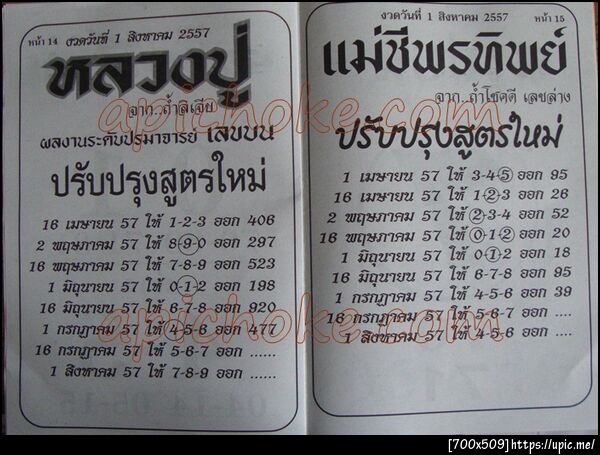 หน้า 14 งวดวันที่ 1 สิงหาคม 2557
หลวงปู่
จาก..ถ้ำลิเจีย
ผลงานระดับปรมาจารย์ เลขบน
ปรับปรุงสูตรใหม่
16 เมษายน 57 ให้ 1-2-3 ออก 406
2 พฤษภาคม 57 ให้ 8-9-0 ออก 297
16 พฤษภาคม 57 ให้ 7-8-9 ออก 523
1 มิถุนายน 57 ให้ 0-1-2 ออก 198
16 มิถุนายน 57 ให้ 6-7-8 ออก 920
1 กรกฎาคม 57 ให้ 4-5-6 ออก 477
16 กรกฎาคม 57 ให้ 5-6-7 ออก ......
1 สิงหาคม 57 ให้ 7-8-9 ออก ......
งวดวันที่ 1 สิงหาคม 2557 หน้า 15
แม่ชีพรทิพย์
จาก..ถ้ำโชคดี เลขล่าง
ปรับปรุงสูตรใหม่
1 เมษายน 57 ให้ 3-4-5 ออก 95
16 เมษายน 57 ให้ 1-2-3 ออก 26
2 พฤษภาคม 57 ให้ 2-3-4 ออก 52
16 พฤษภาคม 57 ให้ 0-1-2 ออก 20
1 มิถุนายน 57 ให้ 0-1-2 ออก 18
16 มิถุนายน 57 ให้ 6-7-8 ออก 95
1 กรกฎาคม 57 ให้ 4-5-6 ออก 39
16 กรกฎาคม 57 ให้ 5-6-7 ออก ....
1 สิงหาคม 57 ให้ 4-5-6 ออก ....
apichoke.com
apichoke.com
[700x509]https://upic.me/